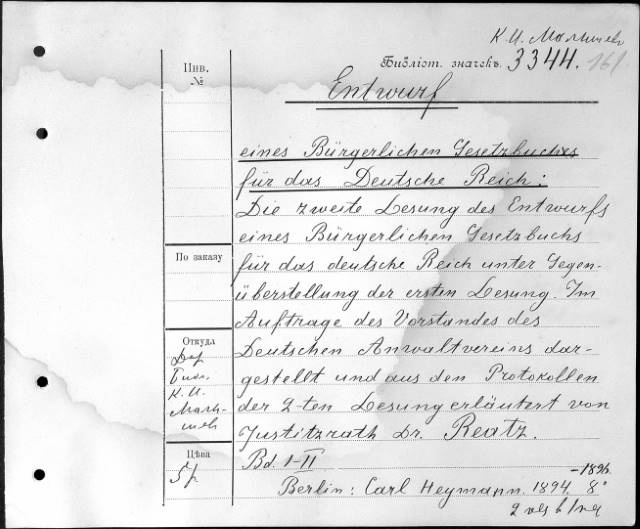 К. И. Малышев
Библіот. значекъ. 3344. 161
Инв.
№
Entwurf
eines Bürgerlichen Gesetzbuches
für das Deutsche Reich:
Die zweite Lesung des Entwurfs
eines Bürgerlichen Gesetzbuchs
По заказу
für das deutsche Reich unter Gegen-
überstellung der ersten Lesung. Im
Auftrage des Vorstandes des
Откуда
Deutschen Anwaltvereins dar-
gestellt und aus den Protokollen
К. И.
Малы-
шев
der 2-ten Lesung erläutert von
Justitzrath Dr. Reatz.
Цѣна
5 р
Bd. I-II
-1896.
Berlin: Carl Heymann. 1894. 8°
2 vls